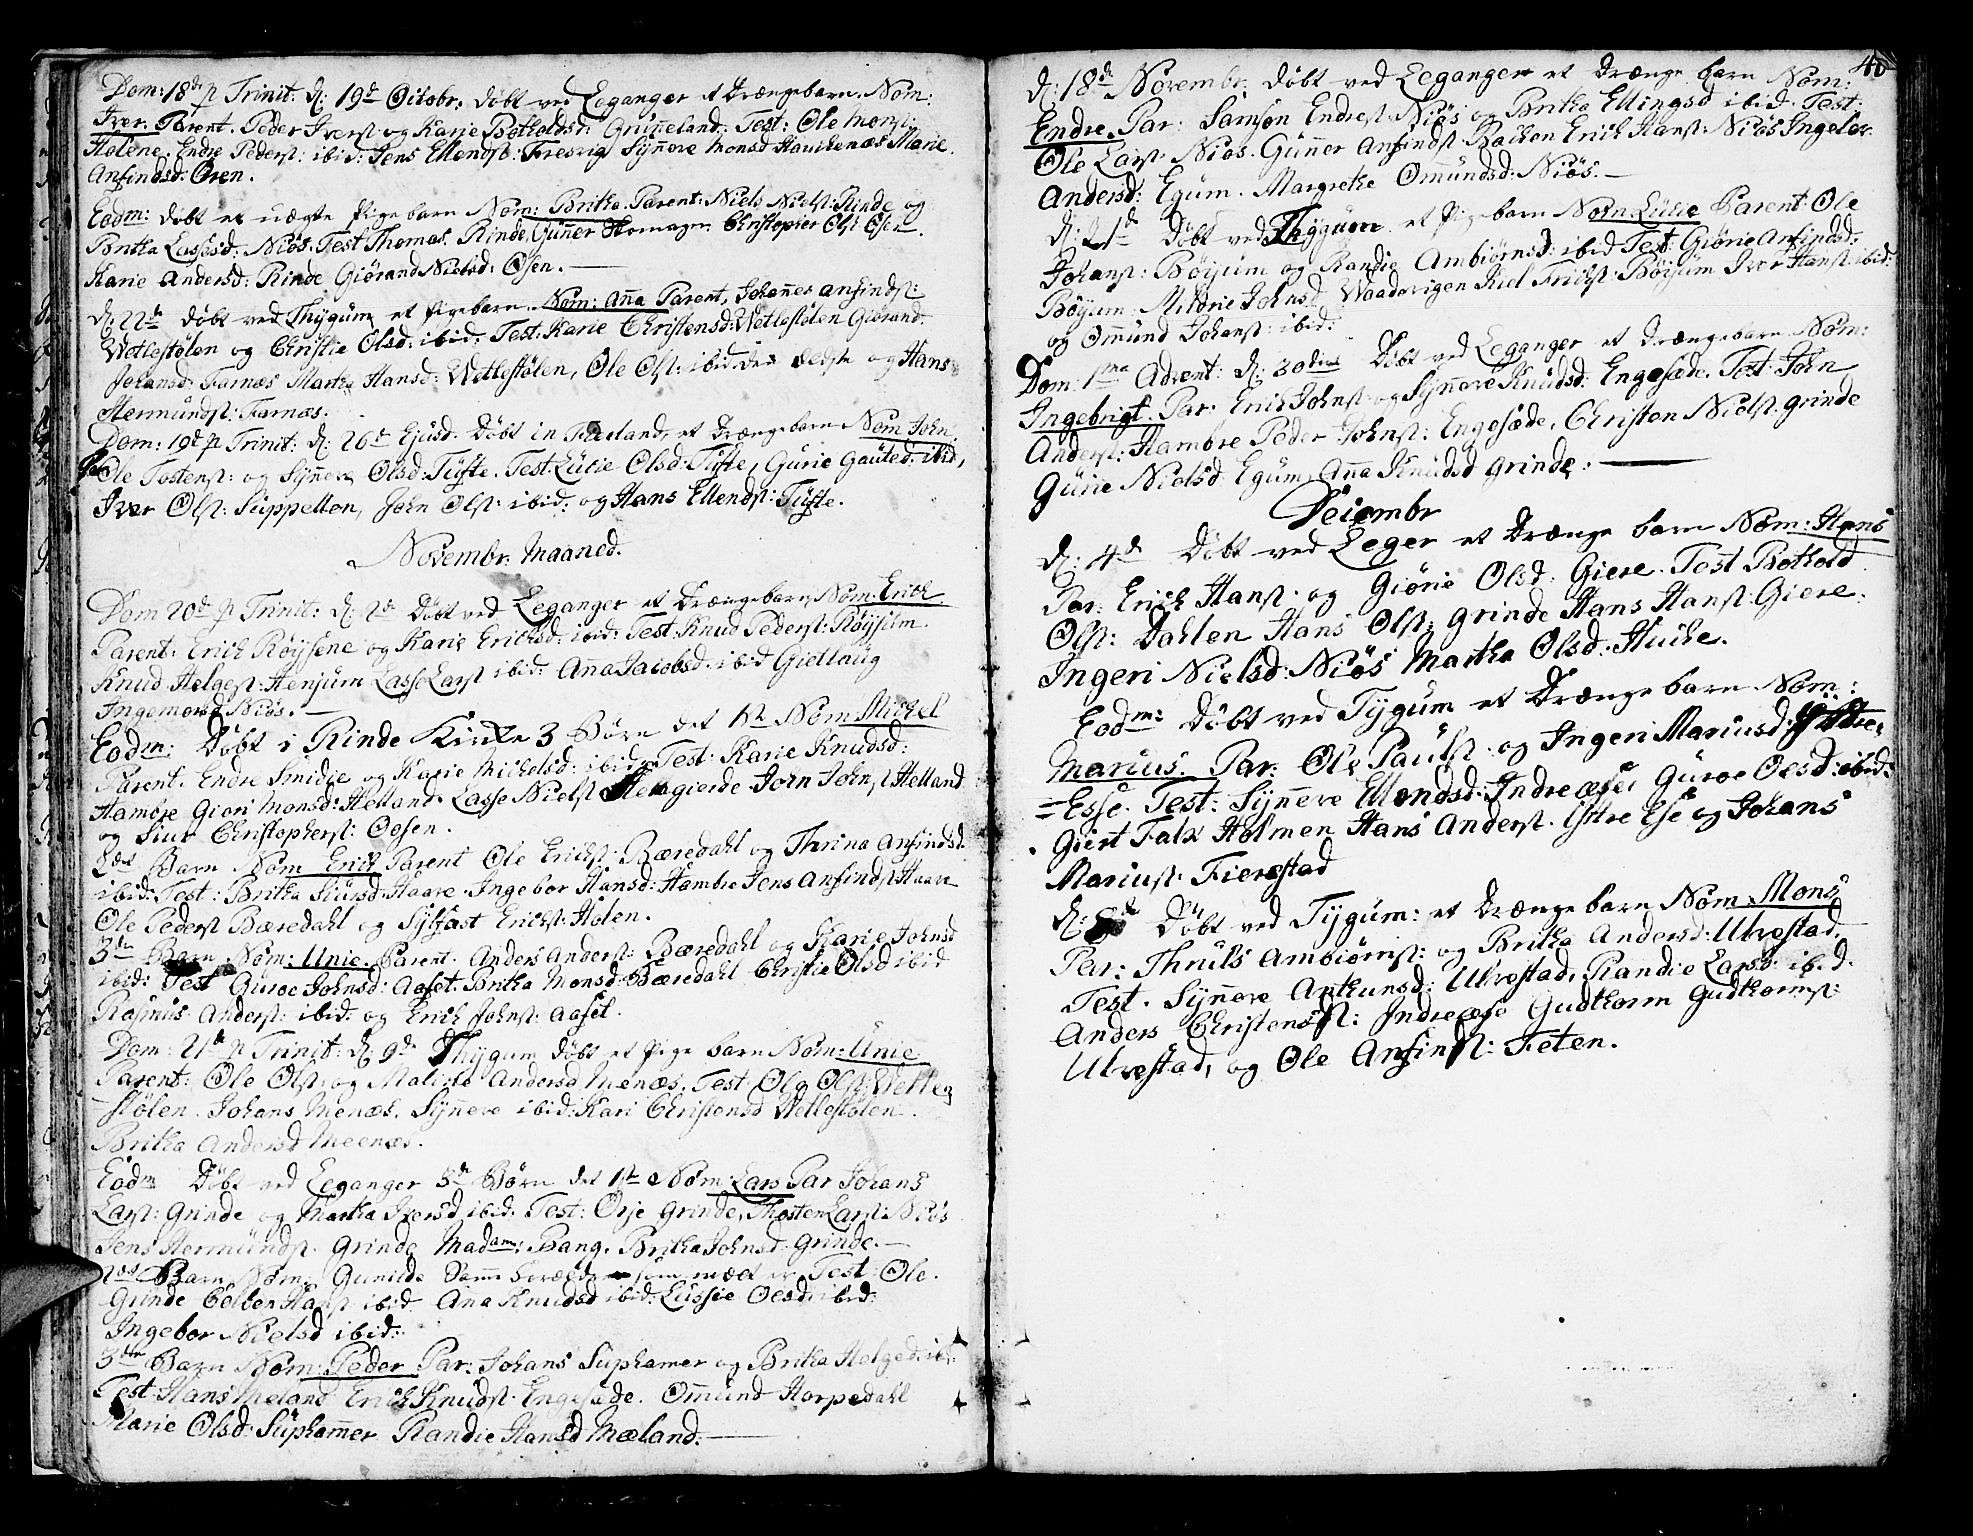 Dom: 18de p Trinit: d: 19de Octobr, døbt ved Leganger et Drængebarn. Nom:
Iver. Parent. Peder Iverst og Karie Botholdsd: Grinneland. Test: Ole Monst:
Holene, Endre Pederst: ibid: Jens Ellendst: Fresvig Synnere Monsd Hauchenæs Marie
Anfindsd: Øren.
Eodm: døbt et uægte Pige barn Nom: Britha. Parent: Niels Nielst: Rinde og
Britha Lassesd: Niøs. Test Thomas Rinde, Gunner Christopher Olst Osen.
Karie Andersd: Rinde Giørand Nielsd: Osen.
d: 22de døbt ved Thygum et Pigebarn. Nom: Anna Parent, Johannes Anfindst:
Wetlestølen og Christie Olsd: ibid: Test: Karie Christensd: Wetlestølen Giørand
Johansd: Farnæs Martha Hansd: Wetlestølen, Ole Olst: ibid: den ældste og Hans
Hermundst: Farnæs.
Dom: 19de p Trinit: d: 26de Ejusd. Døbt in Fierland, et Drængebarn Nom John
Ole Tostenst: og Synnere Olsd: Tufte. Test. Lucie Olsd: Tufte, Gurie Gauted: ibid,
Iver Olst: Suppellen, John Olst: ibid: og Hans Ellendst: Tufte.
Novembr: Maaned.
Dom 20de p Trinit: d: 2de Døbt ved Leganger et Drængebarn, Nom: Erich.
Parent. Erich Røysene og Karie Erichsd: ibid: Test: Knud Pederst: Røysum.
Knud Helgest: Henjum Lasse Larst ibid: Anna Jacobsd: ibid Gietlaug
Ingemorsd Niøs.
Eodm: Døbt i Rinde Kirke 3 Børn det 1ste Nom: Michel
Parent. Endre Smidie og Karie Michelsd: ibid: Test: Karie Knudsd:
Hambre Giøri Monsd: Helland. Lasse Nielst gierde John Johnst Helland
og Siur Christopherst: Oesen.
2det Barn Nom Erich Parent Ole Erichst: Bæredahl og Thrina Anfindsd:
ibid: Test: Britha Siursd: Haare. Ingebor Hansd: Hambre Jens Anfindst Haare
Ole Pederst Bæredahl og Sylfast Erichst: Holen.
3de Barn Nom: Unie. Parent. Anders Anderst: Bæredahl og Karie Johnsd
ibid: Test Guroe Johnsd: Aaset. Britha Monsd: Bæredahl Christie Olsd ibid
Rasmus Anderst: ibid: og Erich Johnst: Aaset.
Dom: 21de p Trinit: d: 9de Thygum døbt et Pige barn Nom: Unie
Parent: Ole Olst: og Malene Andersd Menæs. Test Ole Olst: Wetle
stølen. Johans Menæs. Synnere ibid: Kari Christensd Wetlestølen.
Britha Andersd Meenæs.
Eodm Døbt ved Leganger 3de Børn det 1ste Nom: Lars Par Johans
Larst: Grinde og Martha Iversd ibid: Test: Orje Grinde, Thosten Larst: Niøs
Jens Hermundst. Grinde Madam: Bang. Britha Johnsd. Grinde.
2det Barn Nom: Gunilde Test: Ole
Grinde Hanst ibid. Ana Knudsd ibid: Lussie Oesd: ibid:
Ingebor Nielsd ibid:
3die Barn Nom: Peder Par: Johans Suphamer og Britha Helged: ib:
Test. Hans Meland Erich Knudst. Engesæde. Ommund Horpedahl
Marie Olsd: Suphamer Randie Hansd Mæland:
40
d: 18de Novembr: døbt ved Leganger et Drænge barn Nom:
Endre. Par: Samson Endrest: Niøs og Britha Ellingsd ibid. Test:
Ole Larst. Niøs. Gunner Anfindst. Backen Erich Hanst: Niøs Ingebor
Andersd: Egum. Margrethe Omundsd: Niøs.
d: 21de Døbt ved Thygum et Pigebarn Nom Lucie Parent Ole
Johanst: Bøyum og Randie Ambiørnsd: ibid Test: Giørie Anfindsd:
Bøyum. Mildrie Johnsd Kiel Erichst: Bøyum Iver Hanst: ibid:
og Ommund Johanst: ibid:
Dom: 1ma Advent: d: 30de Døbt ved Leganger et Drængebarn Nom:
Ingebrigt. Par: Erich Johnst: og Synnere Knudsd: Engesæde. Test: John
Anderst: Hambre Peder Johnst: Engesæde, Christen Nielst. Grinde
Gurie Nielsd: Egum, Anna Knudsd Grinde.
Decembr
d: 4de Døbt ved Leger et Drænge barn Nom: Hans
Par: Erich Hanst. og Giørie Olsd: Giere. Test Bothold
Olst: Dahlen Hans Olst: Grinde Hans Hanst: Giere.
Ingeri Nielsd: Niøs Martha Olsd. Huche.
Eodm: Døbt ved Tygum et Drænge barn Nom:
Marius. Par: Ole Paulst. og Ingeri Mariusd: Yttre-
Esse. Test: Synnere Ellendsd: Indreæse Guroe Oesd: ibid:
Giert Falk Holmen Hans Anderst. Yttre Ese og Johans
Mariust. Fierestad
d: 8de Døbt ved Tygum: et Drænge barn Nom. Mons
Par: Thruls Ambiørnst: og Britha Andersd: Ulvestad.
Test. Synnere Anthunsd: Ulvestad, Randie Larsd: ibid.
Anders Christenst: Indreæse Gudthorm Gudthormst:
Ulvestad, og Ole Anfindst: Feten.